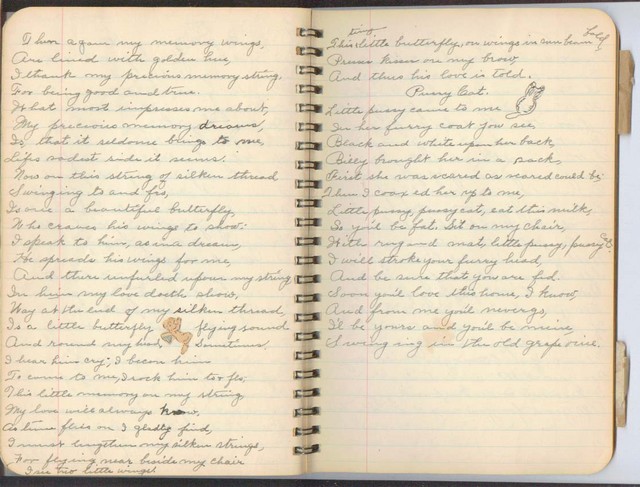 Then again my memory wings,
Are lined with golden hue,
I thank my precious memory string,
For being good and true.
What most impresses me about,
My precious memory dreams,
Is, that it seldome brings to me,
Lifes sadest side it seems!
Now on this string of silken thread
Swinging to and fro,
Is once a beautiful butterfly,
Who craves his wings to show.
I speak to him, as in a dream,
He spreads his wings for me,
And there unfurled upon my string
In him my love doeth show,
Way at the end of my silken thread,
Is a little butterfly flying sound
And round my head, Sometimes,
I hear him cry; I becon him
To come to me, I rock him to & fro,
This little memory on my string
My love will always know,
As time flies on I gladly find,
I must lengthen my silken strings,
For flying near beside my chair
I see two little wings!
tiny
This little butterfly, on wings in sun beam
Told
Presses kisses on my brow,
And thus his love is told.
Purry Cat.
Little pussy came to me
In her furry coat you see,
Black and white upon her back,
Billy brought her in a sack,
First she was scared as scared could be,
Then I coaxed her up to me,
Little pussy, pussy cat, eat this milk,
So you'd be fat. Sit on my chair,
With rug and mat, little pussy, pussy Cat.
I will stroke your furry head,
And be sure that you are fed.
Soon you'd love this house, I know,
And from me you'd never go,
I'll be yours and you'd be mine,
Swinging in the old grape vine.